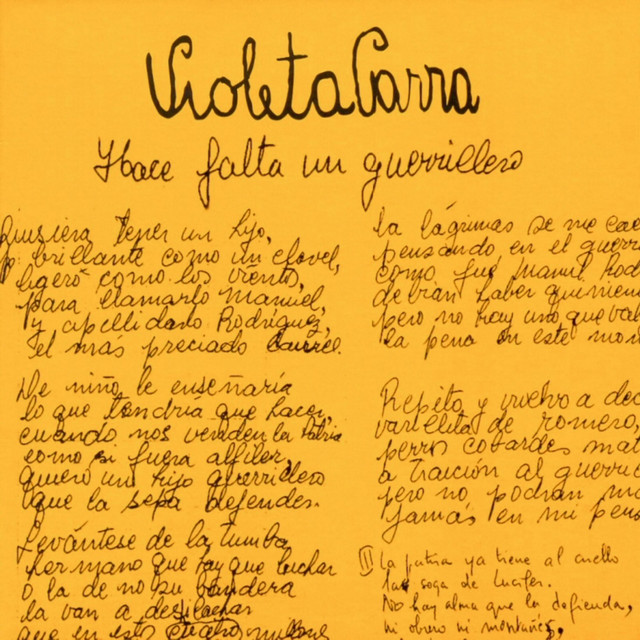 Violeta Parra
Hace falta un guerrillero
Quisiera tener un hijo,
brillante como un clavel,
ligero como los vientos,
para llamarlo Manuel,
y apellidarlo Rodríguez,
el más preciado laurel.
De niño le enseñaría
lo que tendría que hacer,
cuando nos venden la patria
como si fuera alfiler,
quiero un hijo guerrillero
que la sepa defender.
Levántese de la tumba
hermano que hay que luchar
o la de no su bandera
la van a desilachar
que en estos
la lágrimas se me cae
pensando en el guerr
como fué Manuel Rod
debían haber quinien
pero no hay uno que val
la pena en este mom
Repito y vuelvo a dec
varillita de romero,
perros cobardes mat
a traición al guerril
pero no podrán m
jamás en mi pens
II La patria ya tiene al cuello
la soga de Lucifer.
No hay alma que la defienda,
ni obrero ni montañés,